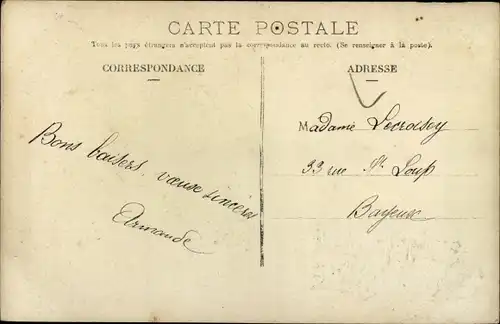 CARTE POSTALE
Tous les pays étrangers n'acceptent pas la correspondance au recto. (Se renseigner à la poste).
CORRESPONDANCE
ADRESSE
Bons baisers, vœux sincères
Armande
Madame Lecroisey
33 rue St. Loup
Bayeux